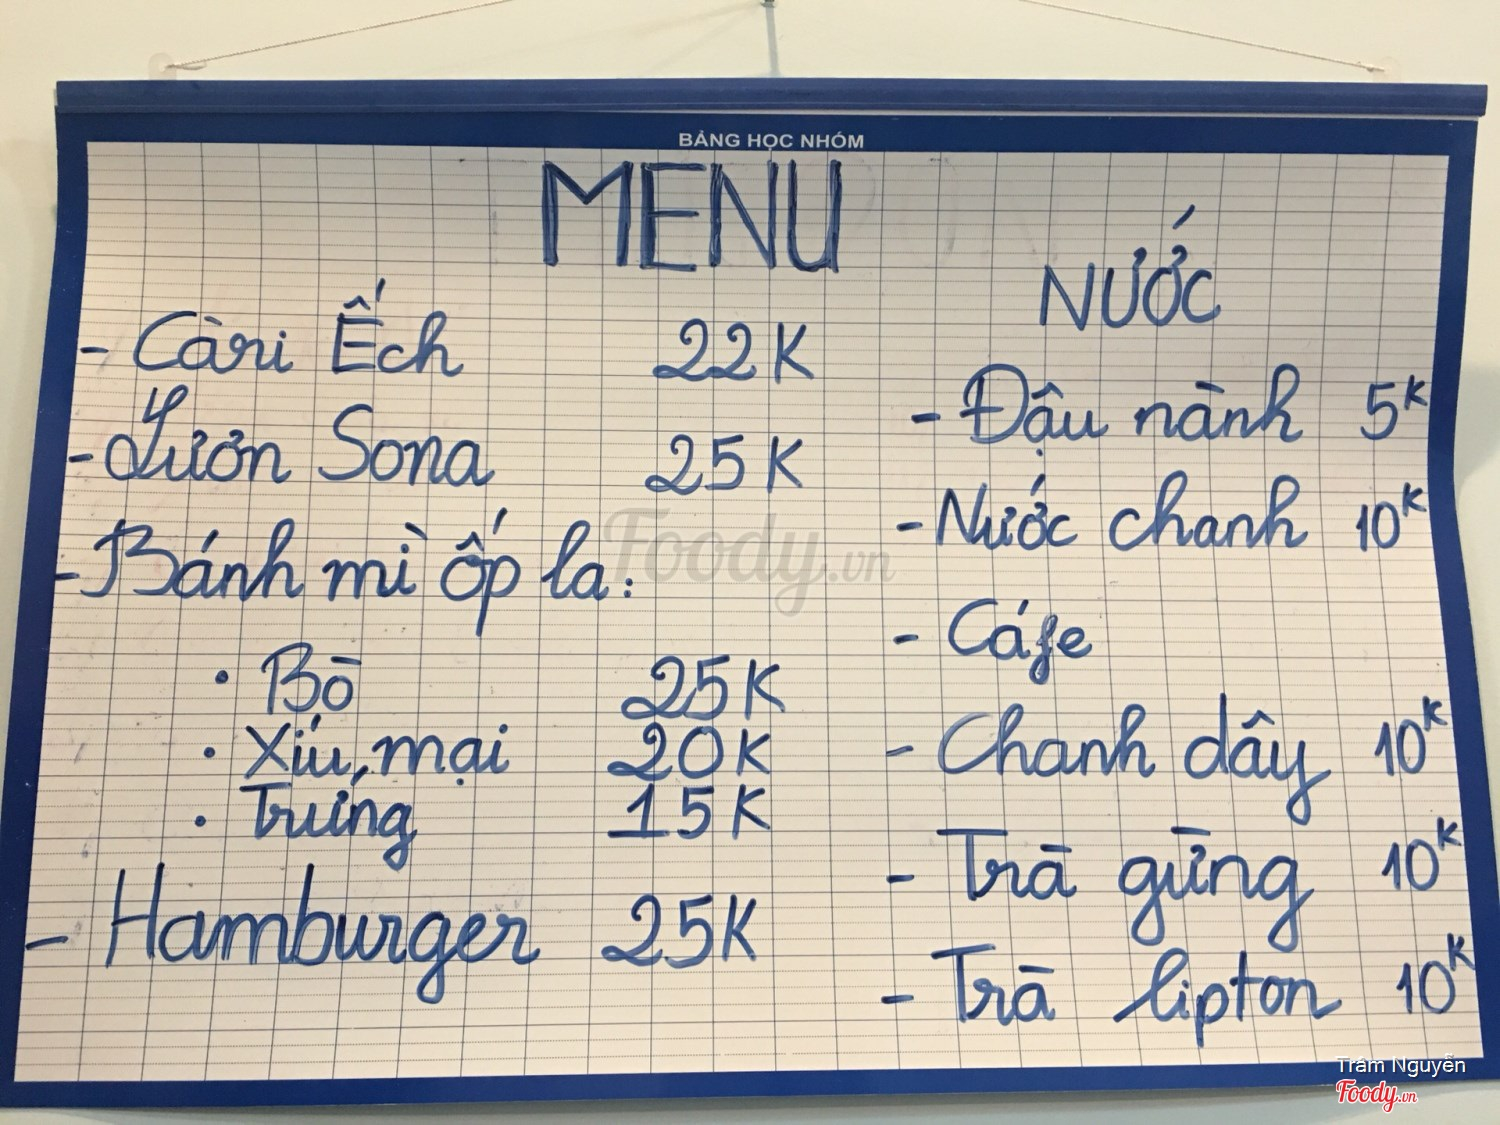 BẢNG HỌC NHÓM
MENU
- Càri Ếch 22K
- Lươn Sona 25K
- Bánh mì ốp la:
• Bò 25K
• Xíu mại 20K
• Trứng 15K
- Hamburger 25K
NƯỚC
- Đậu nành 5K
- Nước chanh 10K
- Cáfe
- Chanh dây 10K
- Trà gừng 10K
- Trà lipton 10K
Foody.vn
Trâm Nguyễn
Foody.vn